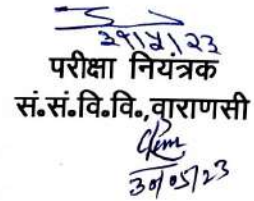 ३१/५/२३
परीक्षा नियंत्रक
सं.सं.वि.वि.,वाराणसी
30/05/23